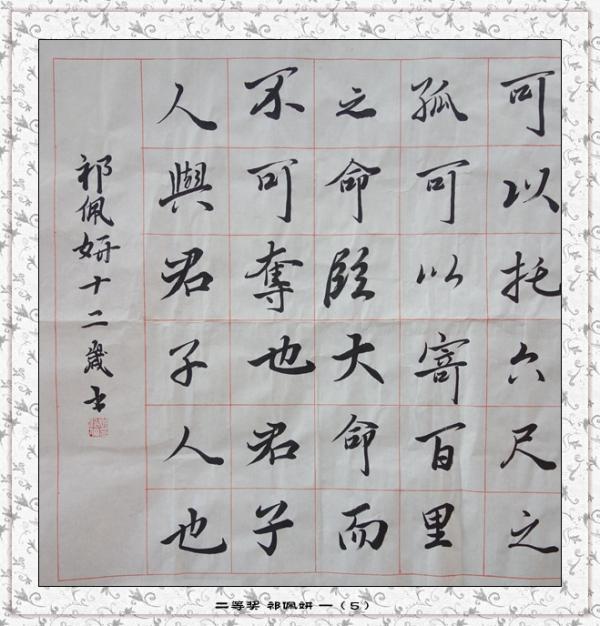 可以托六尺之
孤可以寄百里
之命臨大命而
不可奪也君子
人與君子人也
祁佩妍十二歲书
二等奖 祁佩妍 一（5）